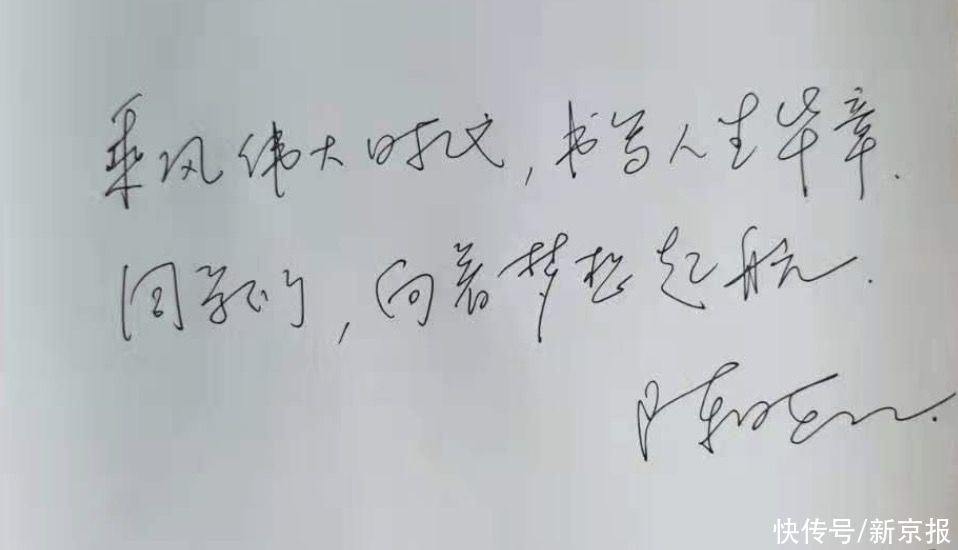 乘风伟大时代，书写人生华章.
同学们，向着梦想起航.
陈
快传号/新京报